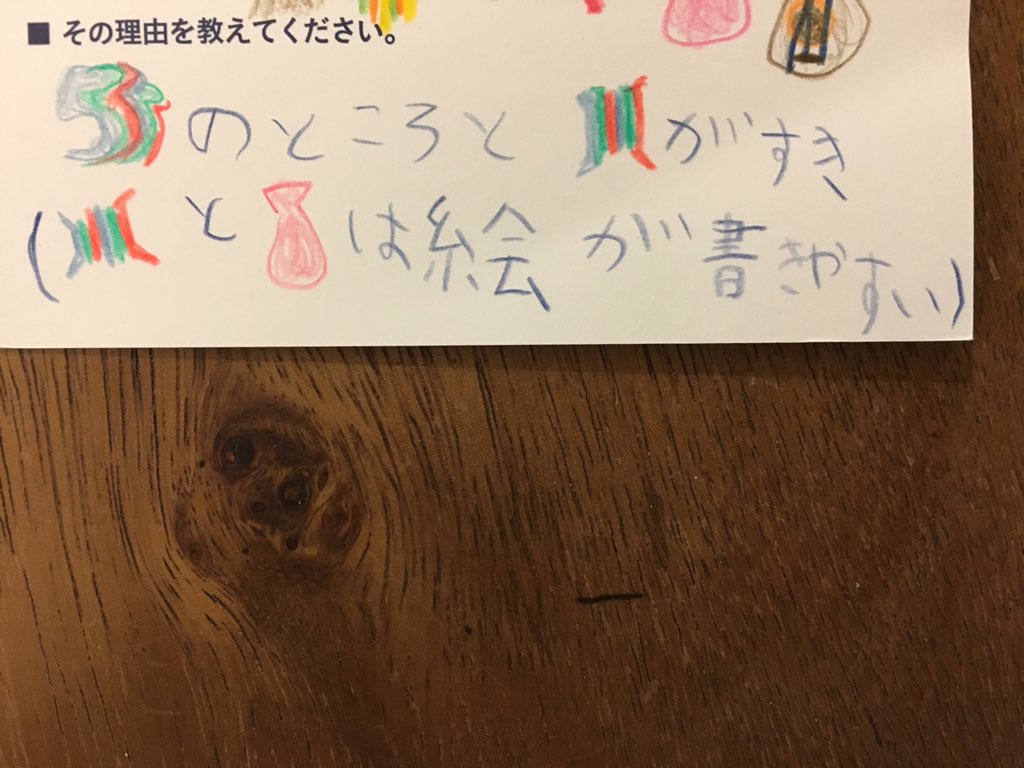 ■ その理由を教えてください。
のところと がすき
(と は絵が書きやすい)